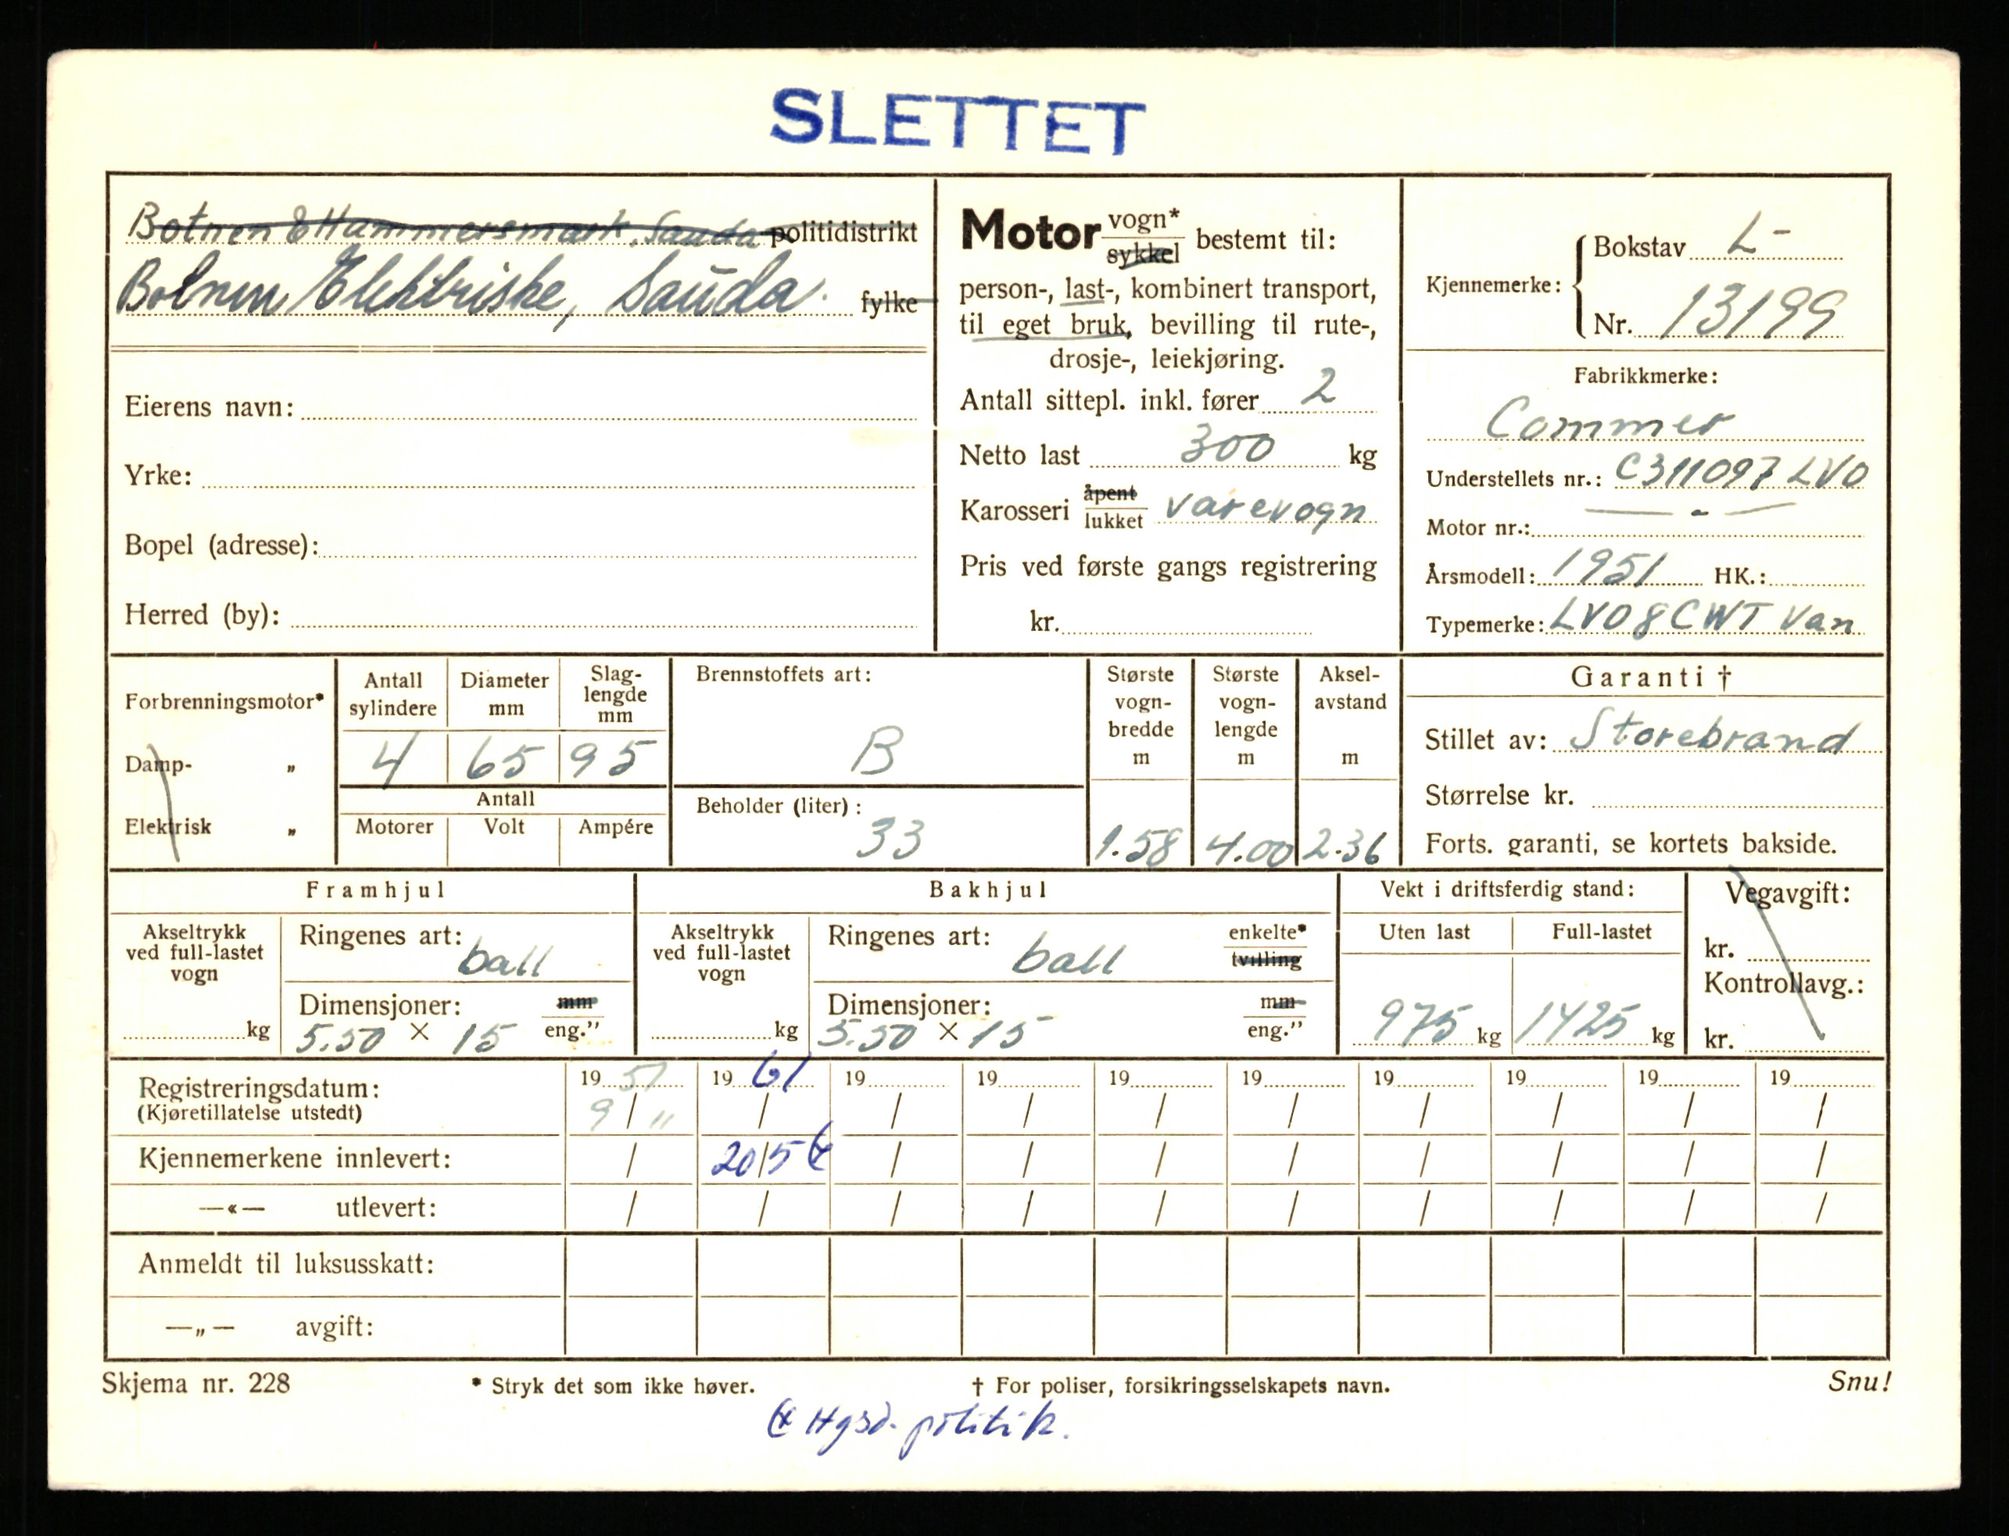 SLETTET
Botnen & Hammersmark, Sauda politidistrikt
Botnen Elektriske, Sauda. fylke
Motor vogn* sykkel bestemt til:
person-, last-, kombinert transport,
til eget bruk, bevilling til rute-,
drosje-, leiekjøring.
Antall sittepl. inkl. fører 2
Netto last 300 kg
Karosseri åpent lukket varevogn
Pris ved første gangs registrering
kr.
Kjennemerke: Bokstav L-
Nr. 13199
Fabrikkmerke:
Commer
Understellets nr.: C311097 LVO
Motor nr.: — " —
Årsmodell: 1951 HK.:
Typemerke: LVO 8 CWT Van
Eierens navn:
Yrke:
Bopel (adresse):
Herred (by):
Forbrenningsmotor*
Damp- „
Elektrisk „
Antall sylindere 4
Diameter mm 65
Slag-lengde mm 95
Antall
Motorer Volt Ampére
Brennstoffets art:
B
Beholder (liter):
33
Største vogn-bredde m 1.58
Største vogn-lengde m 4.00
Aksel-avstand m 2.36
Garanti †
Stillet av: Storebrand
Størrelse kr.
Forts. garanti, se kortets bakside.
Framhjul
Akseltrykk ved full-lastet vogn
kg
Ringenes art: ball
Dimensjoner: mm
5.50 × 15 eng."
Bakhjul
Akseltrykk ved full-lastet vogn
kg
Ringenes art: ball enkelte* tvilling
Dimensjoner: mm
5.50 × 15 eng."
Vekt i driftsferdig stand:
Uten last Full-lastet
975 kg 1425 kg
Vegavgift:
kr.
Kontrollavg.:
kr.
Registreringsdatum: 19 51 19 61 19 19 19 19 19 19 19 19
(Kjøretillatelse utstedt) 9 / 11 / / / / / / / / /
Kjennemerkene innlevert: / 20/5 / / / / / / / /
—«— utlevert: / / / / / / / / / /
Anmeldt til luksusskatt:
—„— avgift:
Skjema nr. 228 * Stryk det som ikke høver. † For poliser, forsikringsselskapets navn. Snu!
Hgsd. politik.